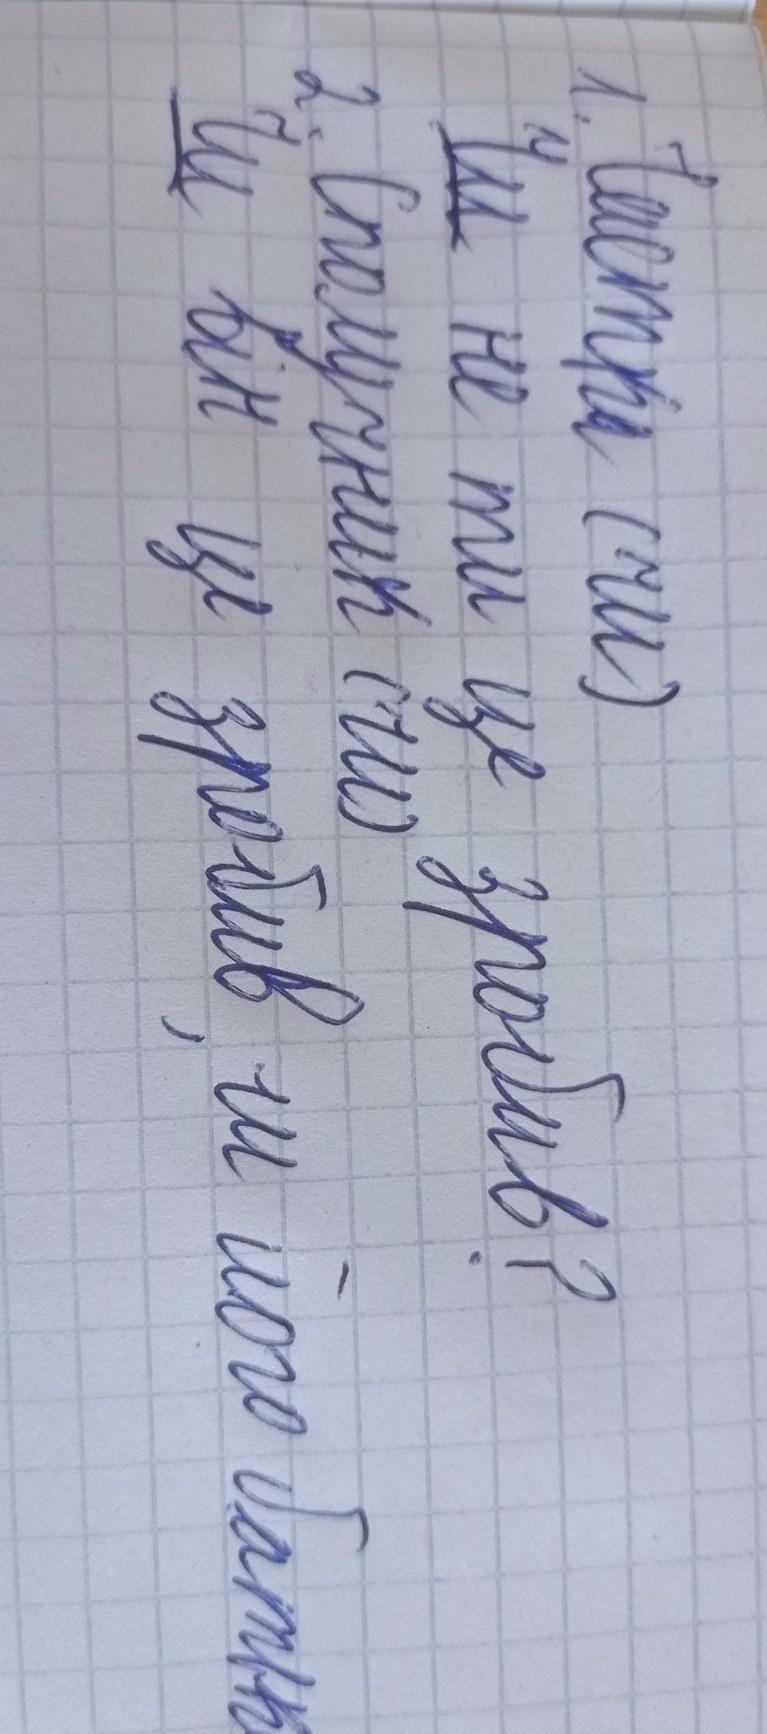 1. Частка (чи)
Чи не ти це зробив?
2. Сполучник (чи)
Чи він це зробив, чи його батьк